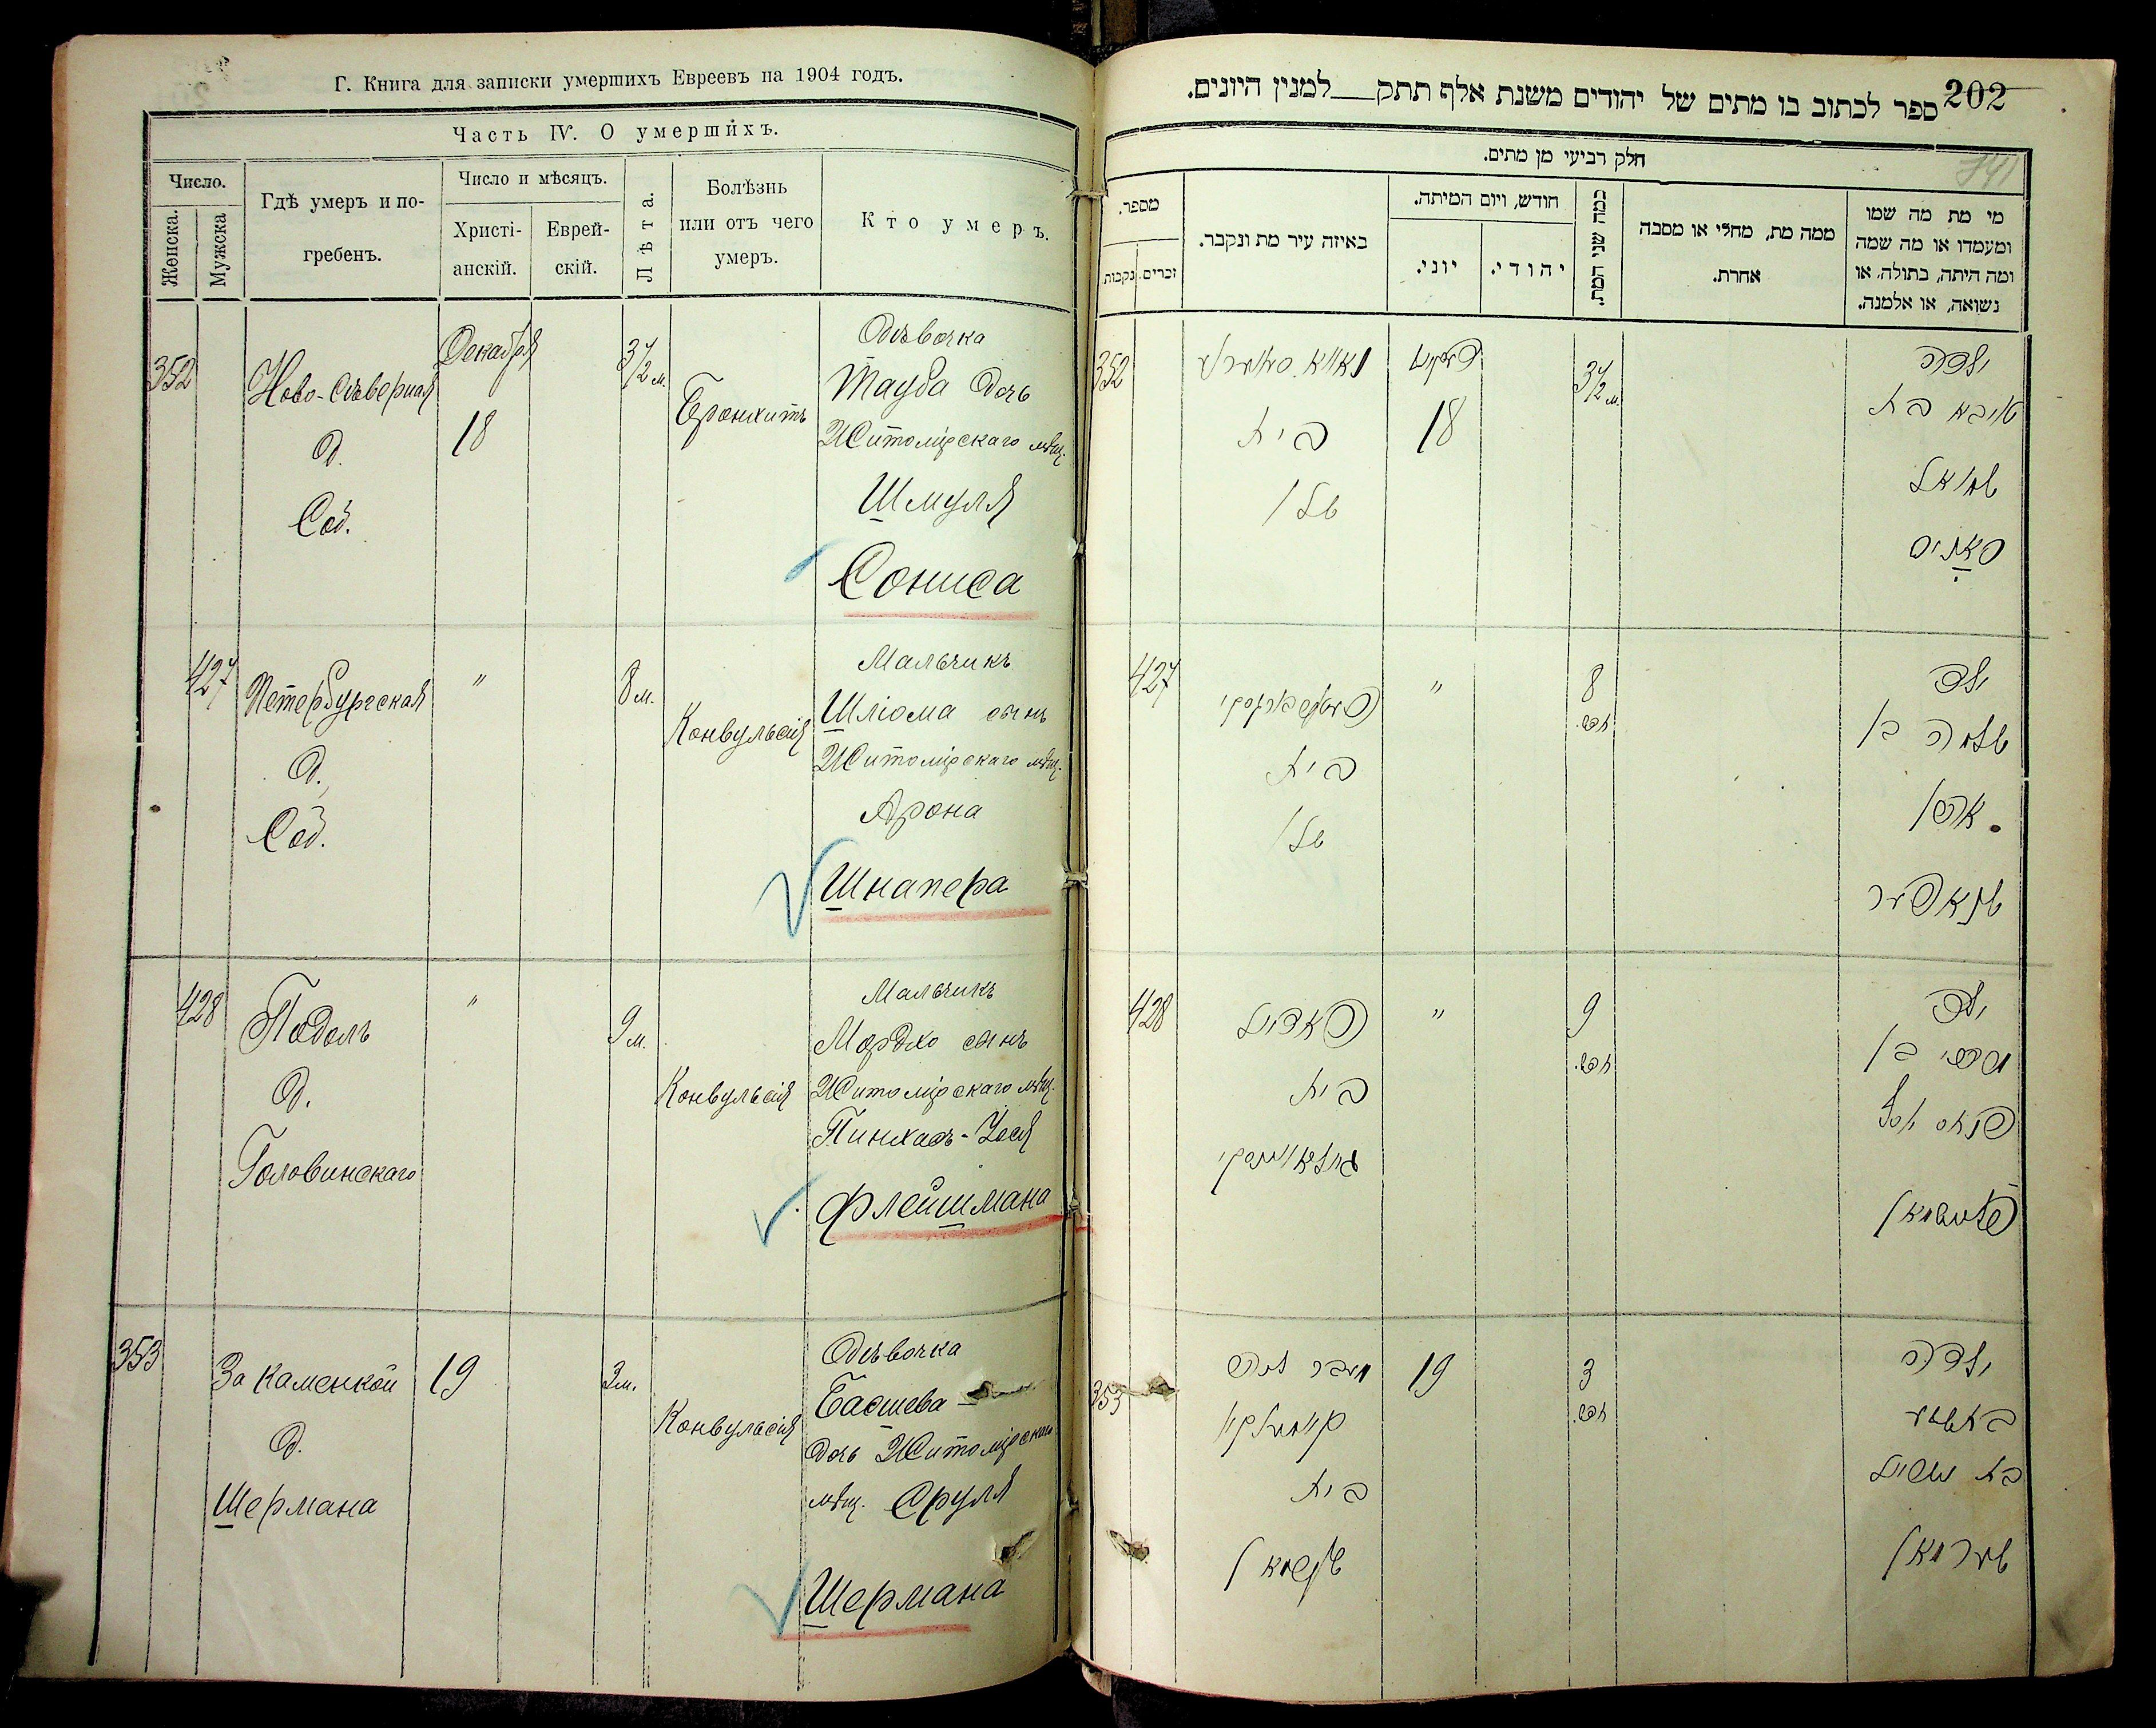 Г. Книга для записки умершихъ Евреевъ на 1904 годъ.
Часть IV. О умершихъ.
Число.
Женска.
Мужска
Гдѣ умеръ и по-
гребенъ.
Число и мѣсяцъ.
Христі-
анскій.
Еврей-
скій.
Лѣта.
Болѣзнь
или отъ чего
умеръ.
Кто умеръ.
352
Ново-Сѣверная
д.
Соб.
Декабря
18
3 1/2 м.
Бронхитъ
Дѣвочка
Тауба дочь
Житомірскаго мѣщ.
Шмуля
Сониса
427
Петербургская
д.
Соб.
"
8 м.
Конвульсія
Мальчикъ
Шліома сынъ
Житомірскаго мѣщ.
Арона
Шнапера
428
Подолъ
д.
Головинскаго
"
9 м.
Конвульсія
Мальчикъ
Мордхо сынъ
Житомірскаго мѣщ.
Пинхасъ-
Флейшмана
353
За Каменкой
д.
Шермана
19
3 м.
Конвульсія
Дѣвочка
Басшева
дочь Житомірскаго
мѣщ. Сруля
Шермана
202
ספר לכתוב בו מתים של יהודים משנת אלף תתק___למנין היונים.
חלק רביעי מן מתים.
מספר.
נקבות
זכרים
באיזה עיר מת ונקבר.
חודש, ויום המיתה.
יוני.
יהודי.
כמה שני המת.
ממה מת, מחלי או מסבה
אחרת.
מי מת מה שמו
ומעמדו או מה שמה
ומה היתה, בתולה, או
נשואה, או אלמנה.
352
בית
18
3 1/2 м.
ילדה
טויבא בת
שמואל
427
בית
"
8
חדש.
ילד
שלמה בן
אהרן
שנאפער
428
פאדול
בית
"
9
חדש.
ילד
מרדכי בן
פליישמאן
353
בית
19
3
חדש.
ילדה
בת
שערמאן